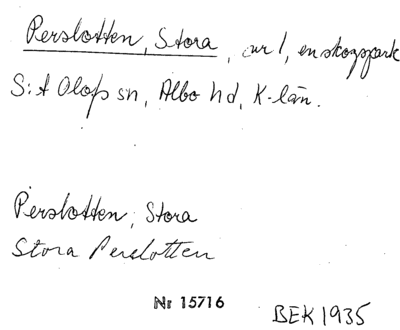 Perslotten, Stora, ur l, en skogspark
S:t Olofs sn, Albo hd, K-län.
Perslotten, Stora
Stora Perslotten
Nr 15716
BEK 1935